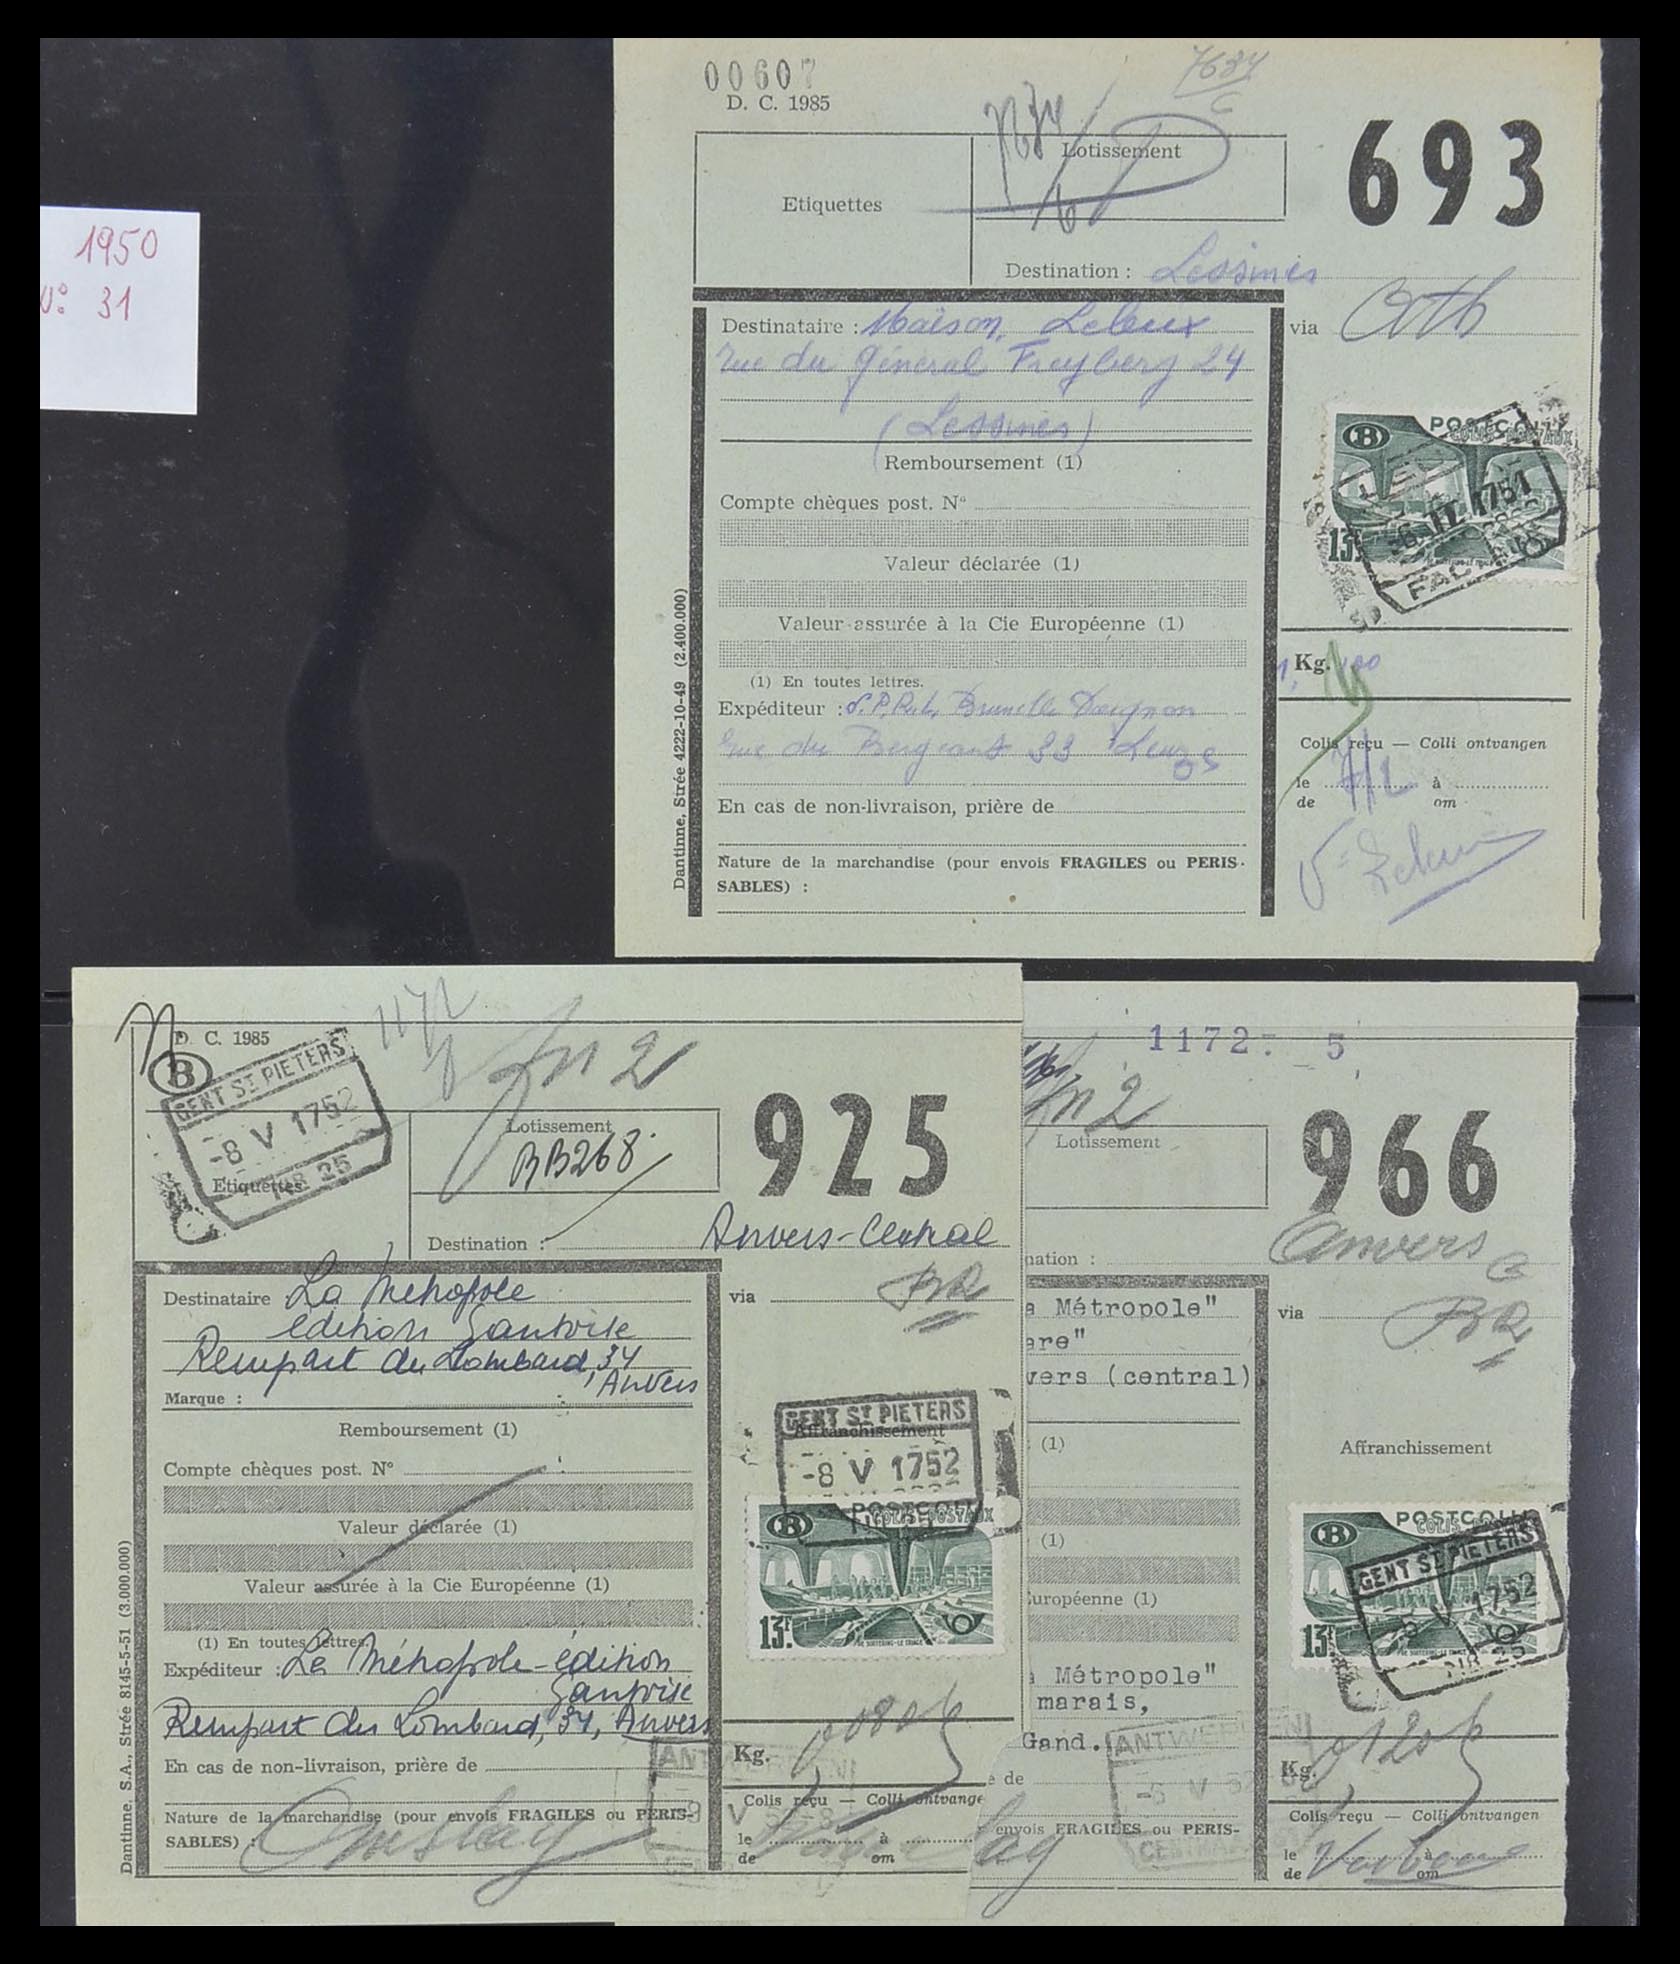 1950
N° 31
00607
D. C. 1985
Lotissement
Etiquettes
693
Destination : Lessines
Destinataire : Maison Leleux
via Ath
rue du Général Freyberg 24
(Lessines)
Remboursement (1)
Compte chèques post. N°
Valeur déclarée (1)
Valeur assurée à la Cie Européenne (1)
(1) En toutes lettres.
Expéditeur :
En cas de non-livraison, prière de
Nature de la marchandise (pour envois FRAGILES ou PERIS-
SABLES) :
Dantinne, Strée 4222-10-49 (2.400.000)
B POSTCOLLI
COLIS POSTAUX
13F
Kg.
Colis reçu — Colli ontvangen
le à
de om
D. C. 1985
B
GENT ST PIETERS
-8 V 1752
NR 25
Etiquettes
Lotissement
BB268
925
Destination : Anvers-Central
Destinataire La Métropole
édition Gantoise
Rempart du Lombard, 34
Anvers
Marque :
via BR
Remboursement (1)
Compte chèques post. N°
Valeur déclarée (1)
Valeur assurée à la Cie Européenne (1)
(1) En toutes lettres.
Expéditeur : La Métropole-édition
Gantoise
Rempart du Lombard, 34, Anvers
En cas de non-livraison, prière de
Nature de la marchandise (pour envois FRAGILES ou PERIS-
SABLES) :
Dantinne, S.A., Strée 8145-5-51 (3.000.000)
GENT ST PIETERS
Affranchissement
-8 V 1752
B POSTCOLLI
COLIS POSTAUX
13F.
Kg.
Colis reçu — Colli ontvange
le à
de om
1172. 5
Lotissement
966
nation : Anvers C
a Métropole"
ere"
vers (central)
via BR
(1)
Affranchissement
(1)
uropéenne (1)
B POSTCOLLI
COLIS POSTAUX
GENT ST PIETERS
-5 V 1752
NR 25
13F
a Métropole"
marais,
Gand.
ANTWERPEN
e de
envois FRAGILES ou PERIS-
Kg.
Colis reçu — Colli ontvangen
le à
de om